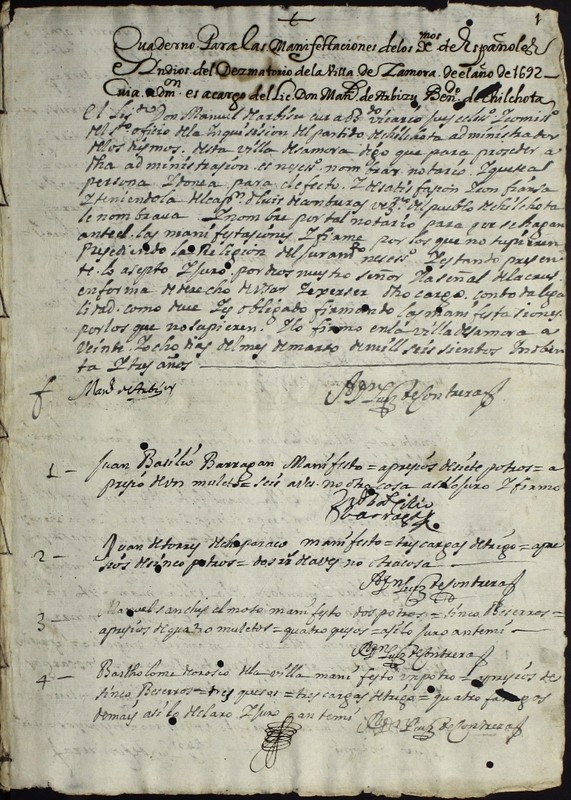 1
Quaderno Para las Manifestaciones de los Dℯmos de Españoles
E Yndios del Dezmatorio de la Villa de Zamora. de el año de 1692
Cuia admon es a cargo del Lic. Don Manl de Arbizu Beno de Chilchota
El Licdo Don Manuel de arbisu cura
del sto oficio de la ynquisision del partido de chilchota administrador
de los dysmos desta villa de samora digo que para proseder a
dha administrasion es neseso nombrar notario
persona ydonea para el efecto
y teniendola el capn D luis de contreras veso del pueblo de chilchota
le nombrava Y nombro por tal notario para que se hagan
ante el las manifestasiones Y firme por los que no supieren
presediendo la Religion del juramto neseso Y estando presen
te lo asepto Y juro por dios nuestro señor Y la señal de la crus
en forma de derecho de usar Y exerser dho cargo con toda lega
lidad como deve Y es obligado firmando las manifestasiones
por los que no supieren Y lo firmo en la villa de samora a
veinte Y ocho dias del mes de marso de mill seis sientos Y noben
ta Y tres años
Manl de Arbizu Luis de Contreras
1 — Juan Basilio Barragan Manifesto = a presios de siete potros = a
presio de un muleto = seis aves no otra cosa asi lo juro Y firmo
Juo basilio
barragan
2 — Juan de torres de chaparaco manifesto = tres cargas de trigo = a pre
sios de sinco potros = dos rs de aves no otra cosa
Luis de Contreras
3 — Manuel sanches el moto manifesto dos potros = sinco Beserros =
a presios de quatro muletos = quatro quesos = asi lo juro ante mi
Luis de Contreras
4 — Bartholome de orosco de la villa manifesto un potro = a presios de
sinco Beserros = tres quesos = tres cargas de trigo = quatro fanegas
de mais asi lo declaro Y juro ante mi
Luis de Contreras